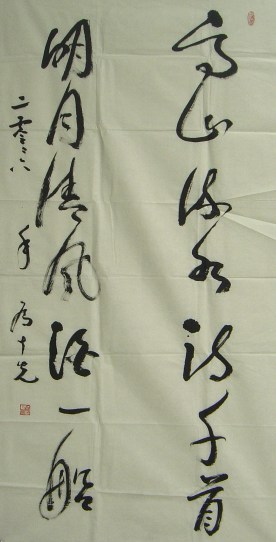 高山流水诗千首
明月清风酒一船
二零零六年